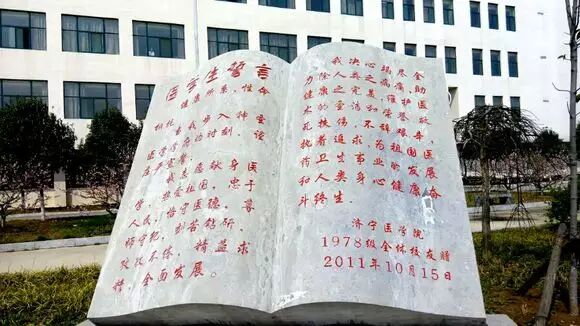 医学生誓言
健康所系,性命
相托。当我步入神圣
医学学府的时刻,谨
庄严宣誓:
我志愿献身医
学,热爱祖国,忠于
人民,恪守医德,尊
师守纪,刻苦钻研,
孜孜不倦,精益求
精,全面发展。
我决心竭尽全
力除人类之病痛,助
健康之完美,维护医
术的圣洁和荣誉,救
死扶伤,不辞艰辛,
执着追求,为祖国医
药卫生事业的发展
和人类身心健康奋
斗终生.
济宁医学院
1978级全体校友赠
2011年10月15日